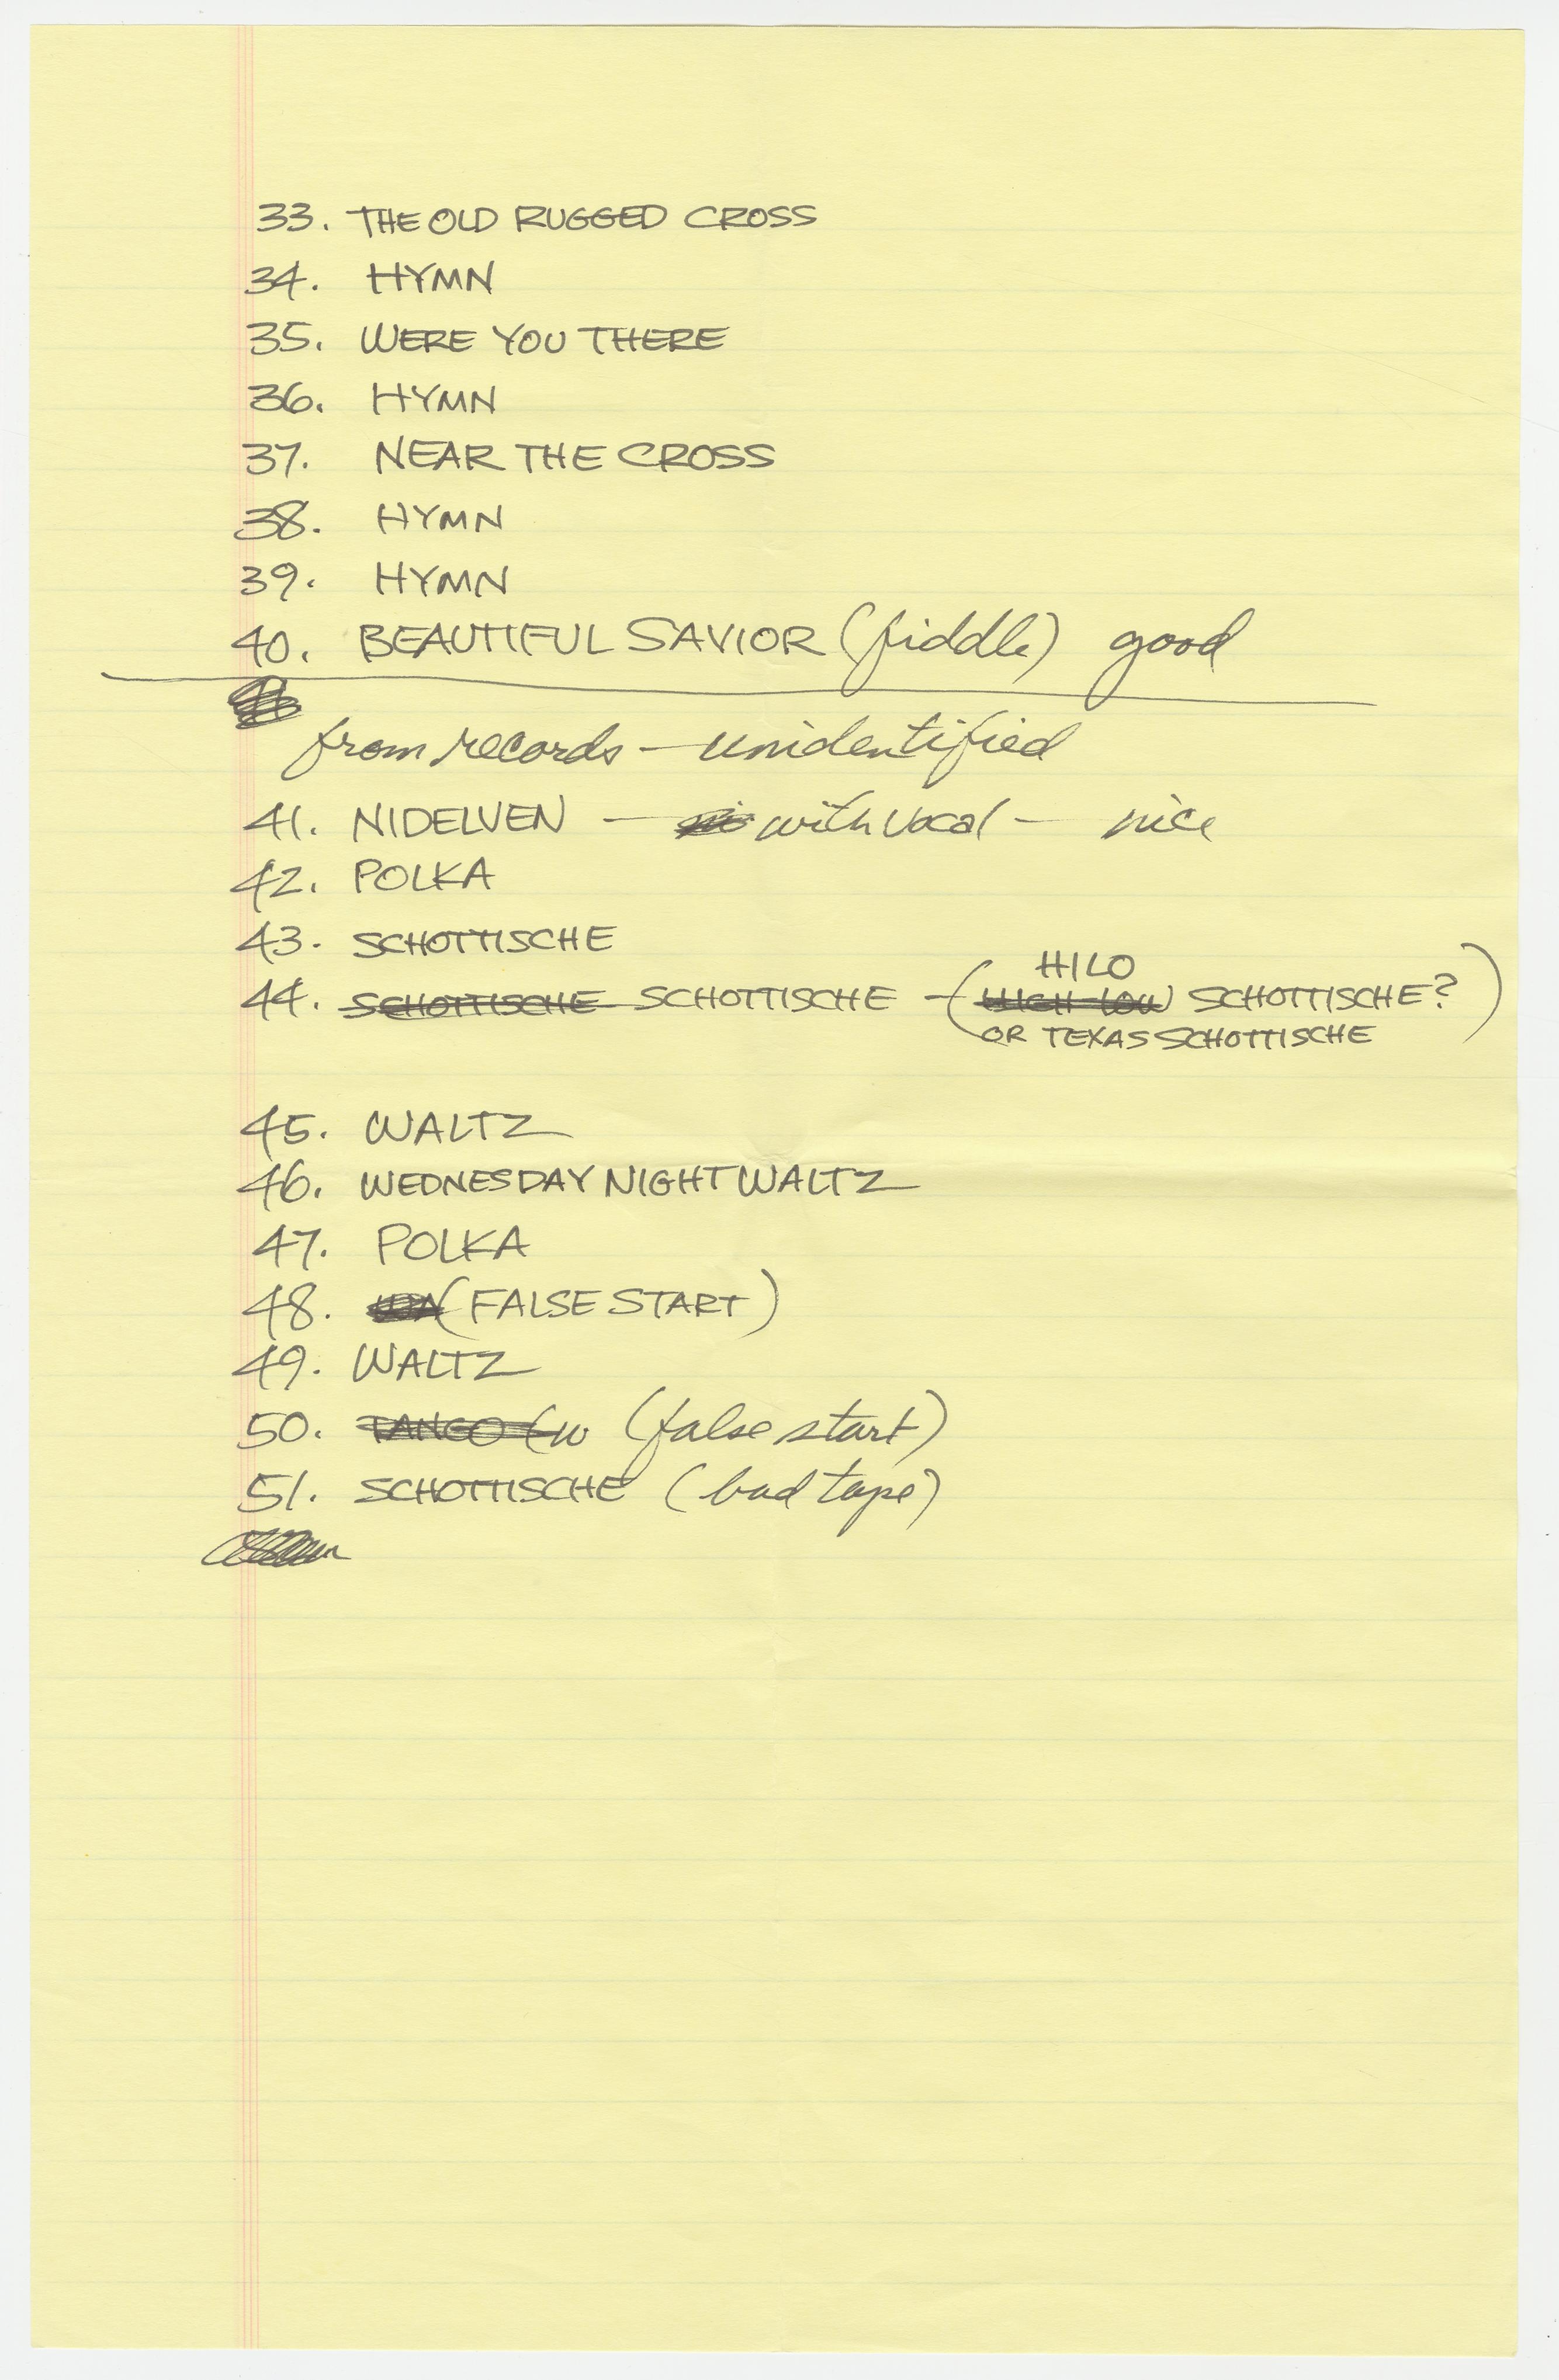 33. THE OLD RUGGED CROSS
34. HYMN
35. WERE YOU THERE
36. HYMN
37. NEAR THE CROSS
38. HYMN
39. HYMN
40. BEAUTIFUL SAVIOR (fiddle) good
from records — unidentified
41. NIDELVEN — with vocal — nice
42. POLKA
43. SCHOTTISCHE
HILO
44. SCHOTTISCHE SCHOTTISCHE — (HIGH-LOW SCHOTTISCHE?)
OR TEXAS SCHOTTISCHE
45. WALTZ
46. WEDNESDAY NIGHT WALTZ
47. POLKA
48. (FALSE START)
49. WALTZ
50. TANGO (w (false start)
51. SCHOTTISCHE (bad tape)